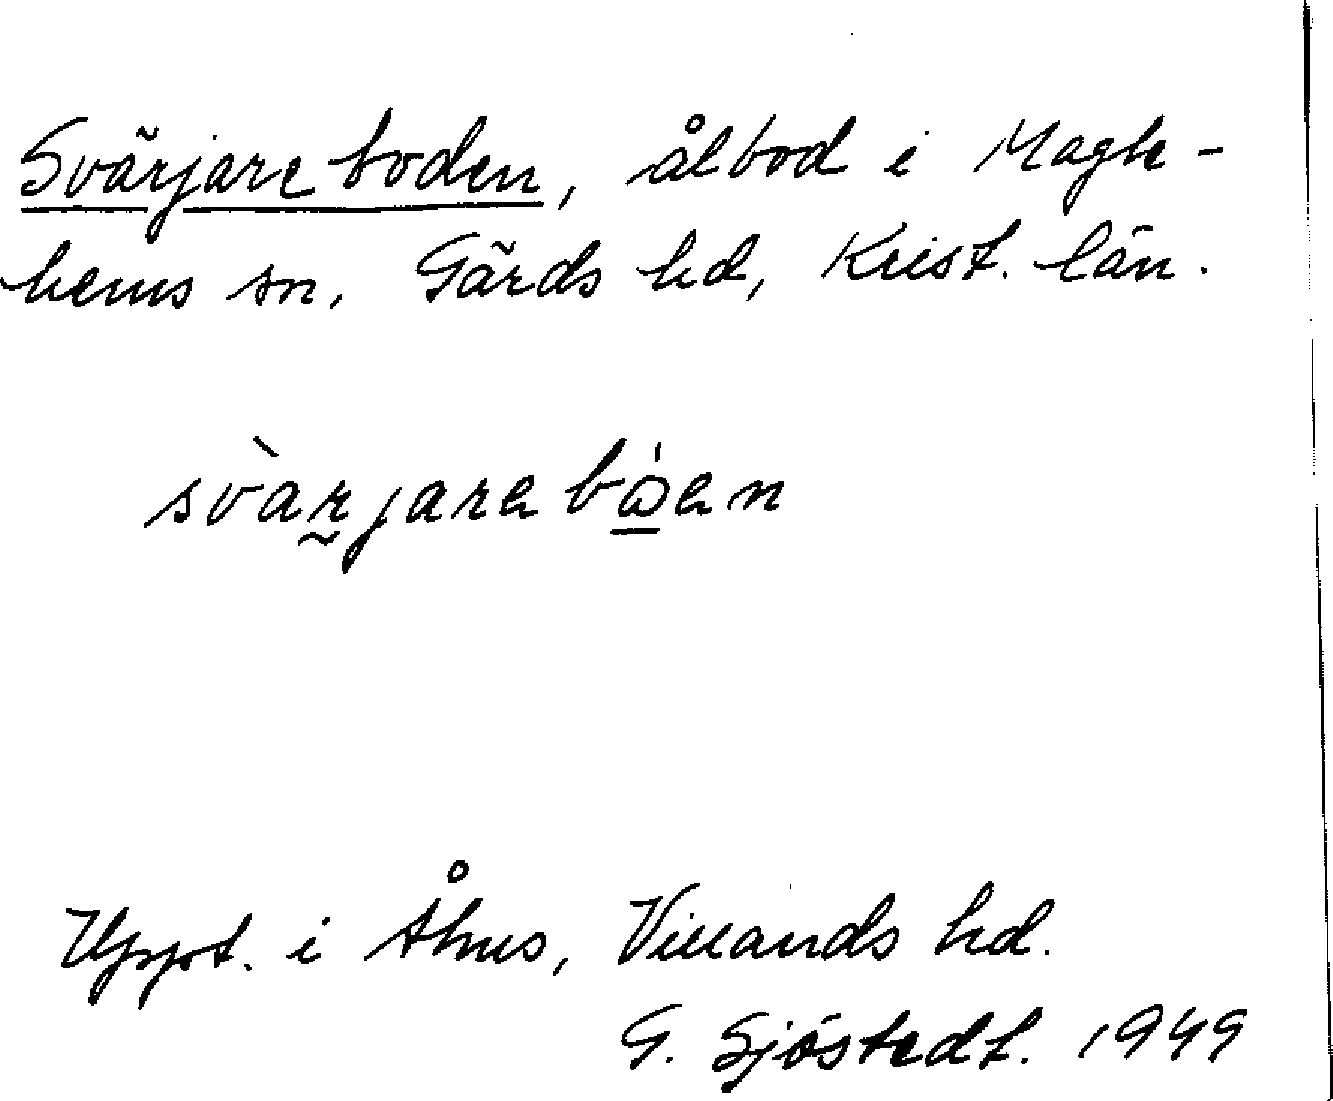 Svärjareboden, ålbod i Magle-
hems sn, Gärds hd, Krist. län.
svàrjarebɷ́en
Uppt. i Åhus, Villands hd.
G. Sjöstedt. 1949